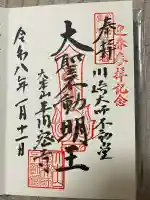 迎春参拝記念
奉拝
川崎大師不動堂
大聖不動明王
大本山 平間寺
令和八年一月十一日